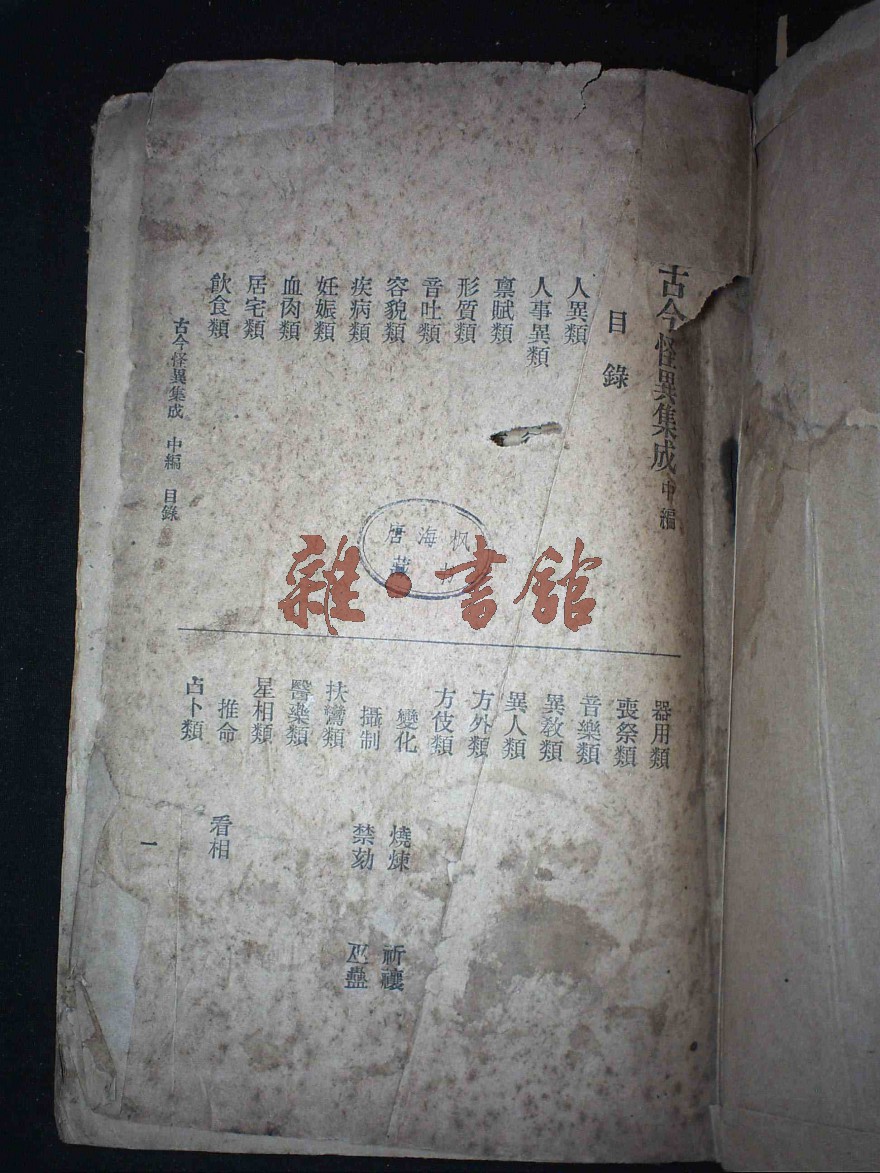 古今怪異集成 中編
目錄
人異類
人事異類
禀賦類
形質類
音吐類
容貌類
疾病類
妊娠類
血肉類
居宅類
飲食類
器用類
喪祭類
音樂類
異教類
異人類
方外類
方伎類
變化 燒煉 祈禳
攝制 禁劾 巫蠱
扶鸞類
醫藥類
星相類
推命 看相
占卜類
古今怪異集成 中編 目錄 一
唐海枫
藏
雜·書館